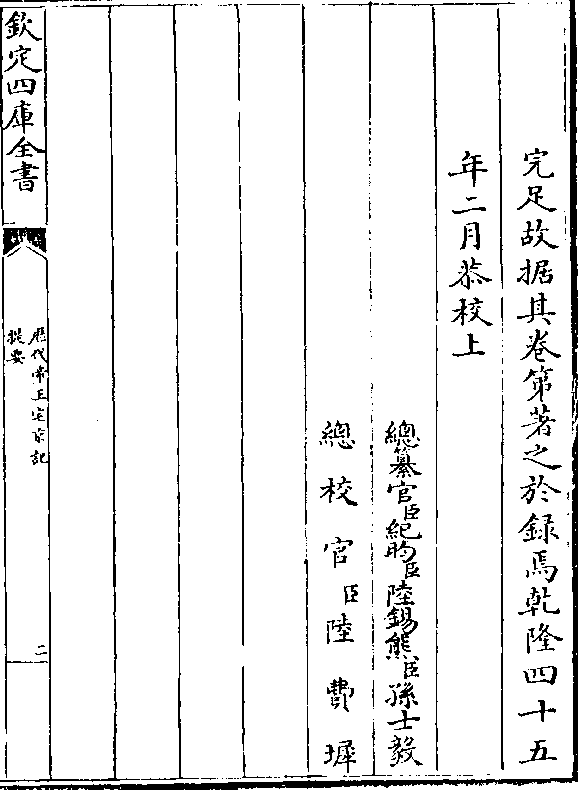 完足故据其卷第著之於録焉乾隆四十五
年二月恭校上
總纂官臣紀昀臣陸錫熊臣孫士毅
總校官臣陸費墀
欽定四庫全書
歷代帝王宅京記
提要
二